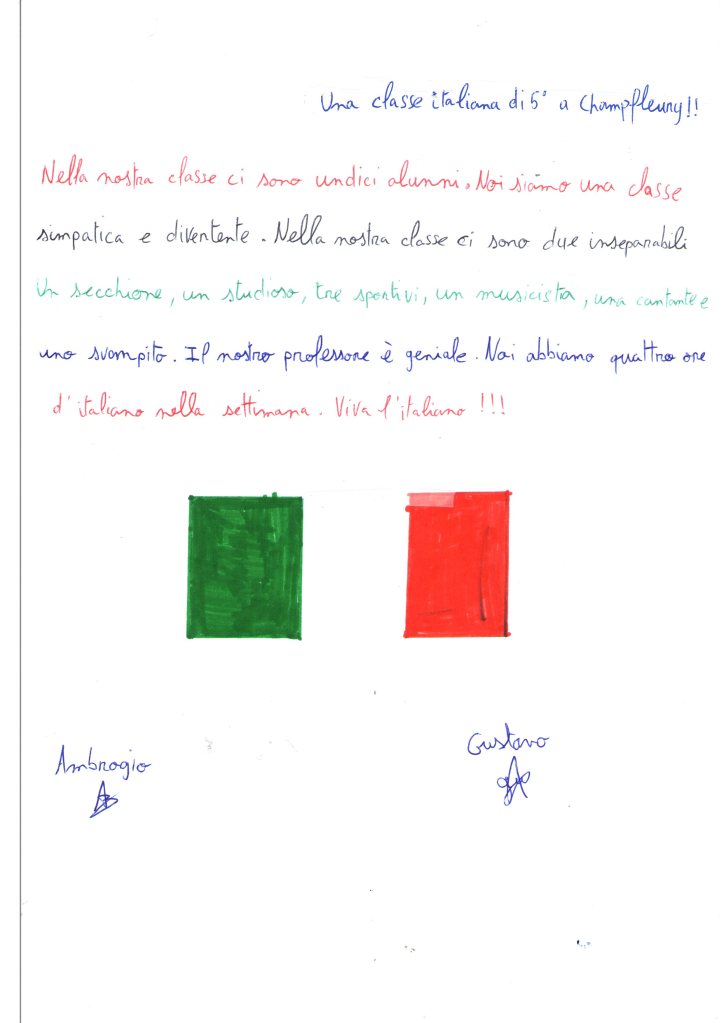 Una classe italiana di 5° a Champfleury!!
Nella nostra classe ci sono undici alunni. Noi siamo una classe
simpatica e divertente. Nella nostra classe ci sono due inseparabili
Un secchione, un studioso, tre sportivi, un musicista, una cantante e
uno svampito. Il nostro professore è geniale. Noi abbiamo quattro ore
d'italiano nella settimana. Viva l'italiano !!!
Ambrogio
Gustavo